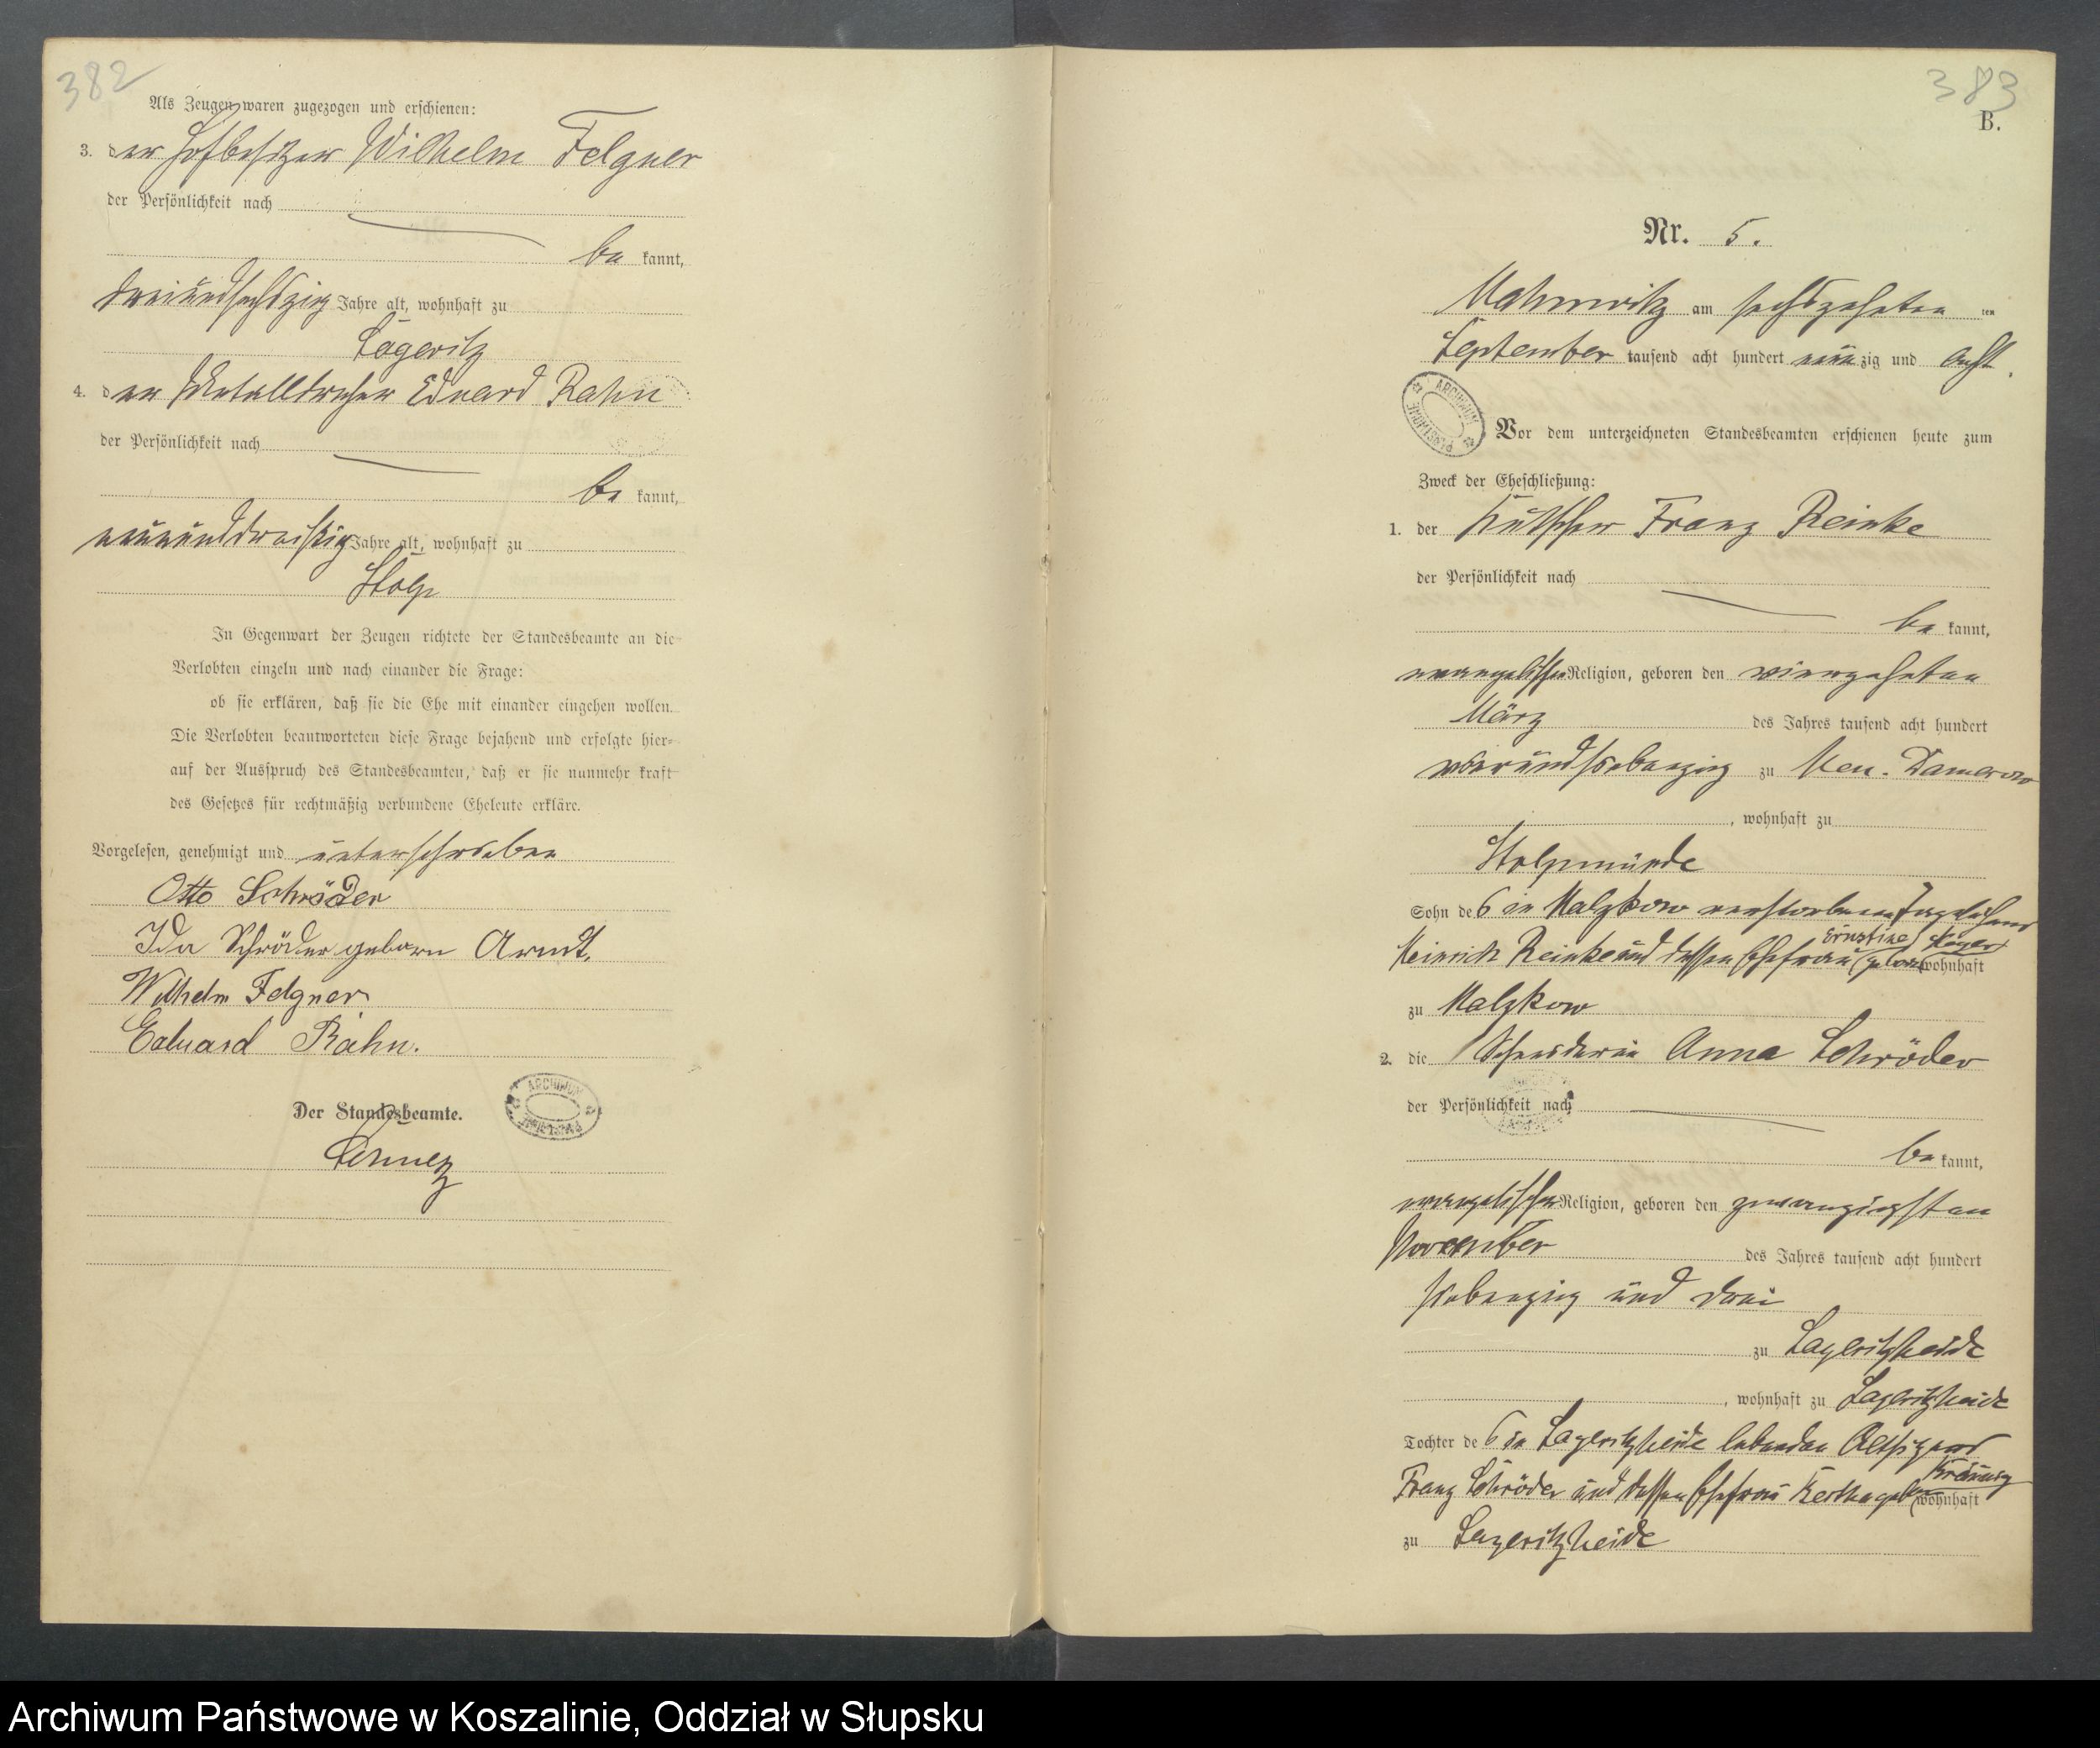 382
Als Zeugen waren zugezogen und erschienen:
3. der Hofbesitzer Wilhelm Felgner
der Persönlichkeit nach
be kannt,
dreiundsechszig Jahre alt, wohnhaft zu
Lageritz
4. der Metalldreher Eduard Rahn
der Persönlichkeit nach
be kannt,
neununddreißig Jahre alt, wohnhaft zu
Stolp
In Gegenwart der Zeugen richtete der Standesbeamte an die
Verlobten einzeln und nach einander die Frage:
ob sie erklären, daß sie die Ehe mit einander eingehen wollen.
Die Verlobten beantworteten diese Frage bejahend und erfolgte hier-
auf der Ausspruch des Standesbeamten, daß er sie nunmehr kraft
des Gesetzes für rechtmäßig verbundene Eheleute erkläre.
Vorgelesen, genehmigt und unterschrieben
Otto Schröder
Ida Schröder geborn Arndt.
Wilhelm Felgner
Eduard Rahn.
Der Standesbeamte.
ARCHIWUM PAŃSTWOWE
383
B.
Nr. 5.
Mahnwitz am sechszehnten ten
September tausend acht hundert neunzig und acht.
ARCHIWUM PAŃSTWOWE
Vor dem unterzeichneten Standesbeamten erschienen heute zum
Zweck der Eheschließung:
1. der Kutscher Franz Reinke
der Persönlichkeit nach
be kannt,
evangelischer Religion, geboren den vierzehnten
März des Jahres tausend acht hundert
vierundsiebenzig zu Neu-Damerow
, wohnhaft zu
Stolpmünde
Sohn des in Malzkow verstorbenen Tagelöhners
Heinrich Reinke und dessen Ehefrau Ernestine geborn wohnhaft
zu Malzkow
2. die Schneiderin Anna Schröder
der Persönlichkeit nach
be kannt,
evangelischer Religion, geboren den zwanzigsten
November des Jahres tausend acht hundert
siebenzig und drei
zu Lageritzheide
, wohnhaft zu Lageritzheide
Tochter des in Lageritzheide lebenden Altsitzers
Franz Schröder und dessen Ehefrau wohnhaft
zu Lageritzheide
Archiwum Państwowe w Koszalinie, Oddział w Słupsku